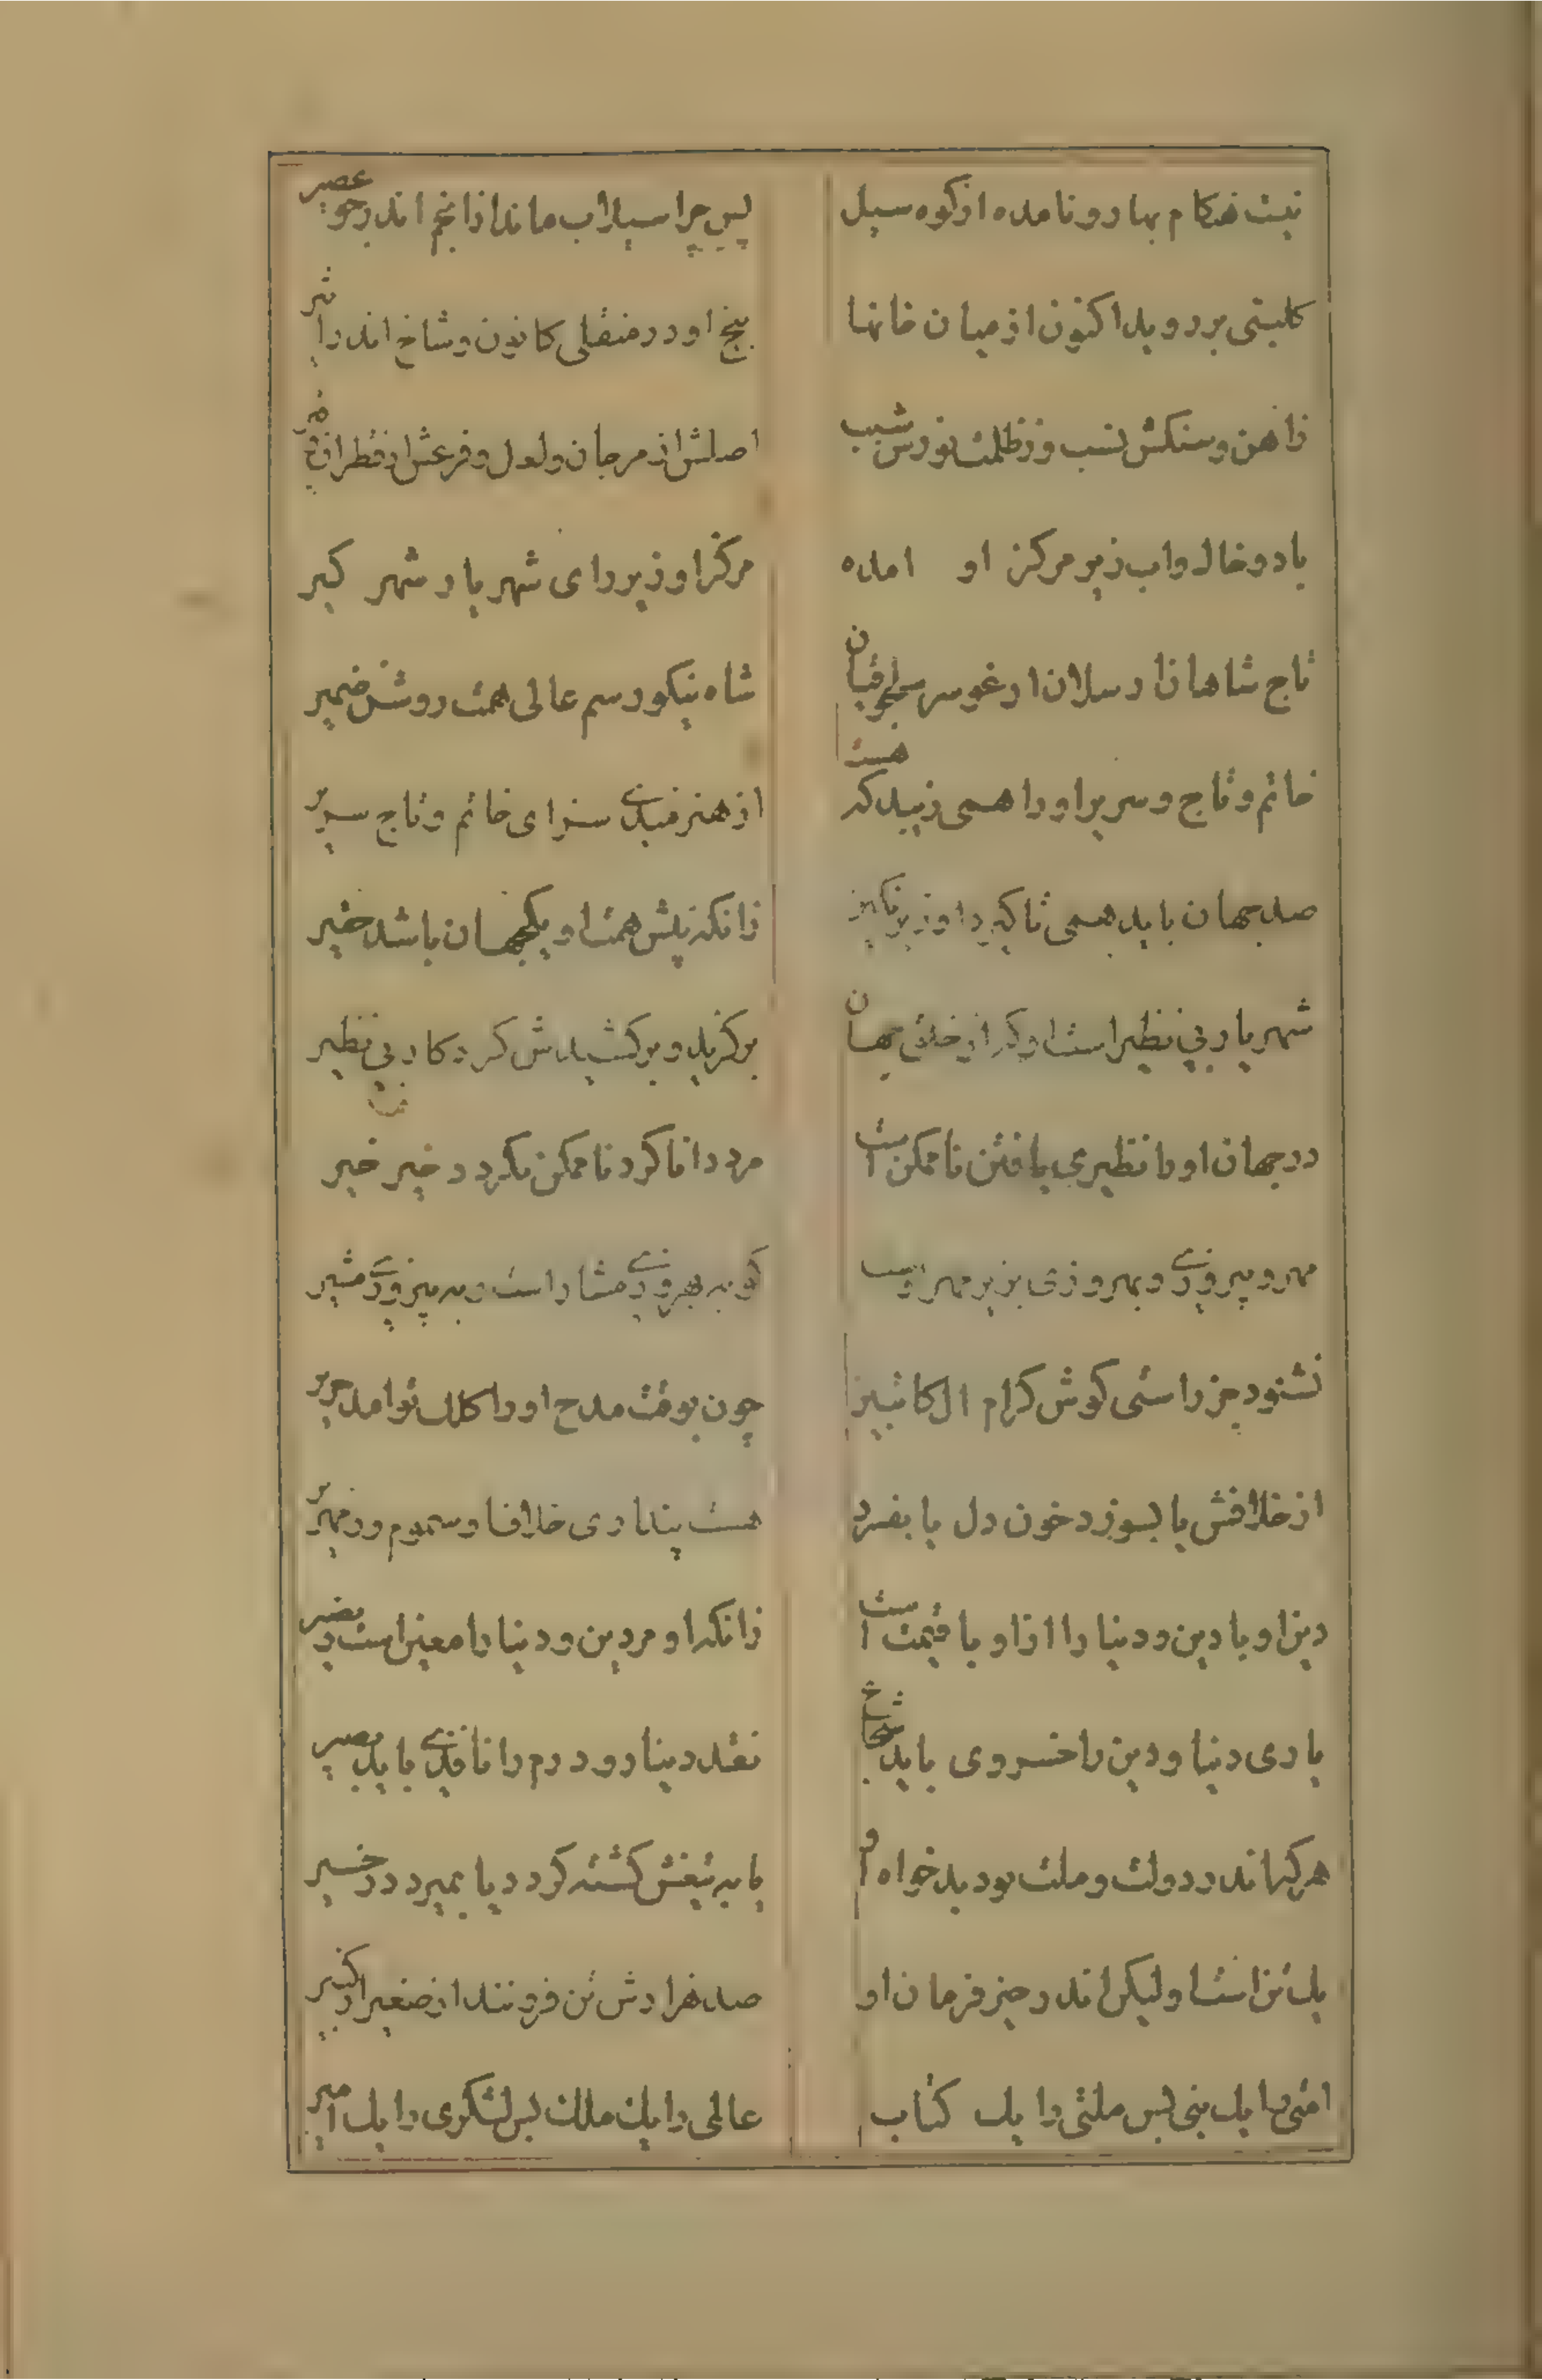 نیست هنکام بهار و نامده از کوه سیل
پس چرا سیلاب ماند از انجم اندر جوی عصیر
کلبنی بر روید اکنون از میان خانها
بیخ او در منقلی کانون و شاخ اندر اثیر
ز اهن و سنکش نسب وز ظلمت نورش سبب
اصلش از مرجان و لعل و فرعش از قطران و قیر
باد و خاک و اب زیر مرکز او امده
مرکز او زیر رای شهریار شهر کیر
تاج شاهان ارسلان ارغو سر سلجوقیان
شاه نیکو رسم عالی همت روشن ضمیر
خاتم و تاج و سریر او را همی زیبد که هست
از هنرمندی سزای خاتم و تاج سریر
صد جهان باید همی تا کیرد او زیر نکین
زانکه پیش همت او یکجهان باشد حقیر
شهریار بی نظیر است او که از خلق جهان
برکزید و برکشیدش کردکار بی نظیر
در جهان او را نظیری یافتن ناممکن است
مرد دانا کرد ناممکن نکردد خیر خیر
مهر و پیروزی و بهروزی بزیر مهر اوست
کو به بهروزی مشار است و به پیروزی مشیر
نشنود جز راستی کوش کرام الکاتبین
چون بوقت مدح او را کلک نو امد صریر
از خلافش یا بسوزد خون دل یا بفسرد
هست پنداری خلاف او سموم و زمهریر
دین او با دین و دنیا را از او با قیمت است
زانکه او مر دین و دنیا را معین است و نصیر
یاری دنیا و دین را خسروی باید شجاع
نقد دینار و درم را ناقدی باید بصیر
هر که اندر دولت و ملت بود بدخواه او
یا به تیغش کشته کردد یا بمیرد در حسیر
یک تن است او لیکن اندر حیز فرمان او
صد هزارش تن فزونند از صغیر و از کبیر
امتی را یک نبی بس ملتی را یک کتاب
عالمی را یک ملک بس لشکری را یک امیر